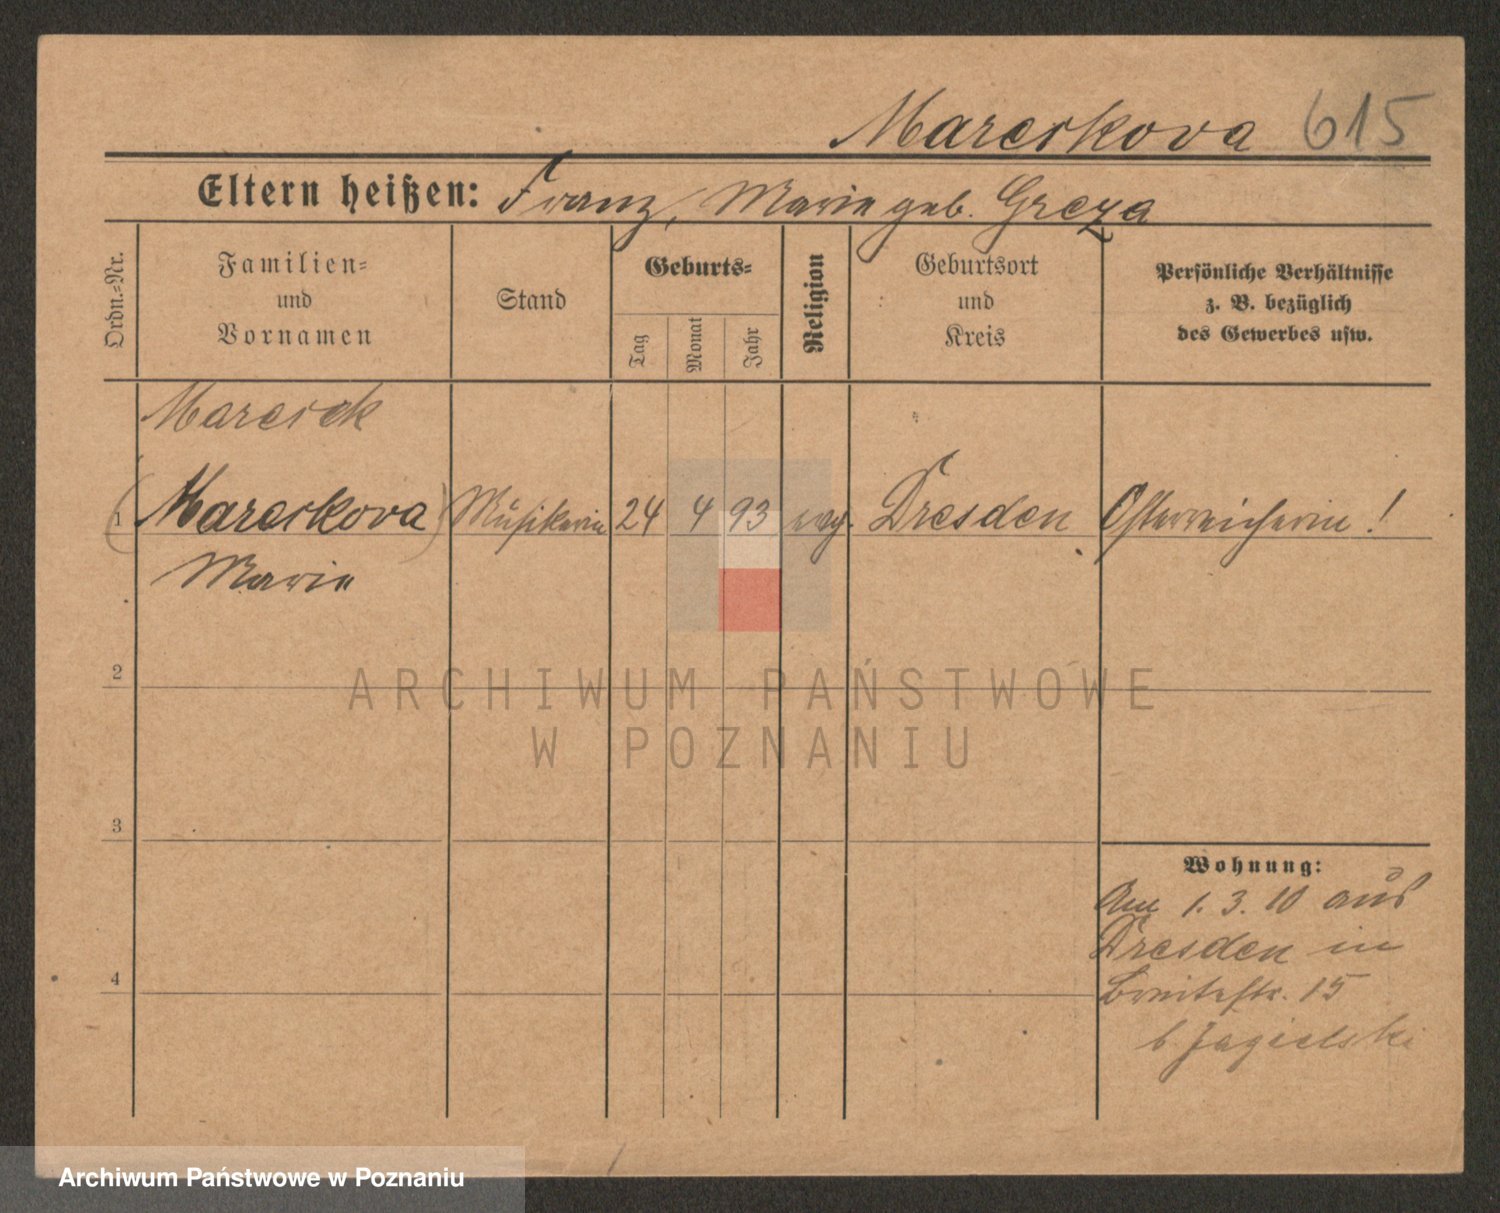 Mareskova 615
Eltern heißen: Franz, Marie geb. Greza
Ordn.-Nr.
Familien-
und
Vornamen
Stand
Geburts-
Tag
Monat
Jahr
Religion
Geburtsort
und
Kreis
Persönliche Verhältnisse
z. B. bezüglich
des Gewerbes usw.
Maresek
1 (Mareskova) Musikerin 24 4 93 evg. Dresden Österreicherin!
Marie
2
ARCHIWUM PAŃSTWOWE
W POZNANIU
3
Wohnung:
Am 1. 3. 10 aus
Dresden in
4
Breitestr. 15
b Jagielski
Archiwum Państwowe w Poznaniu